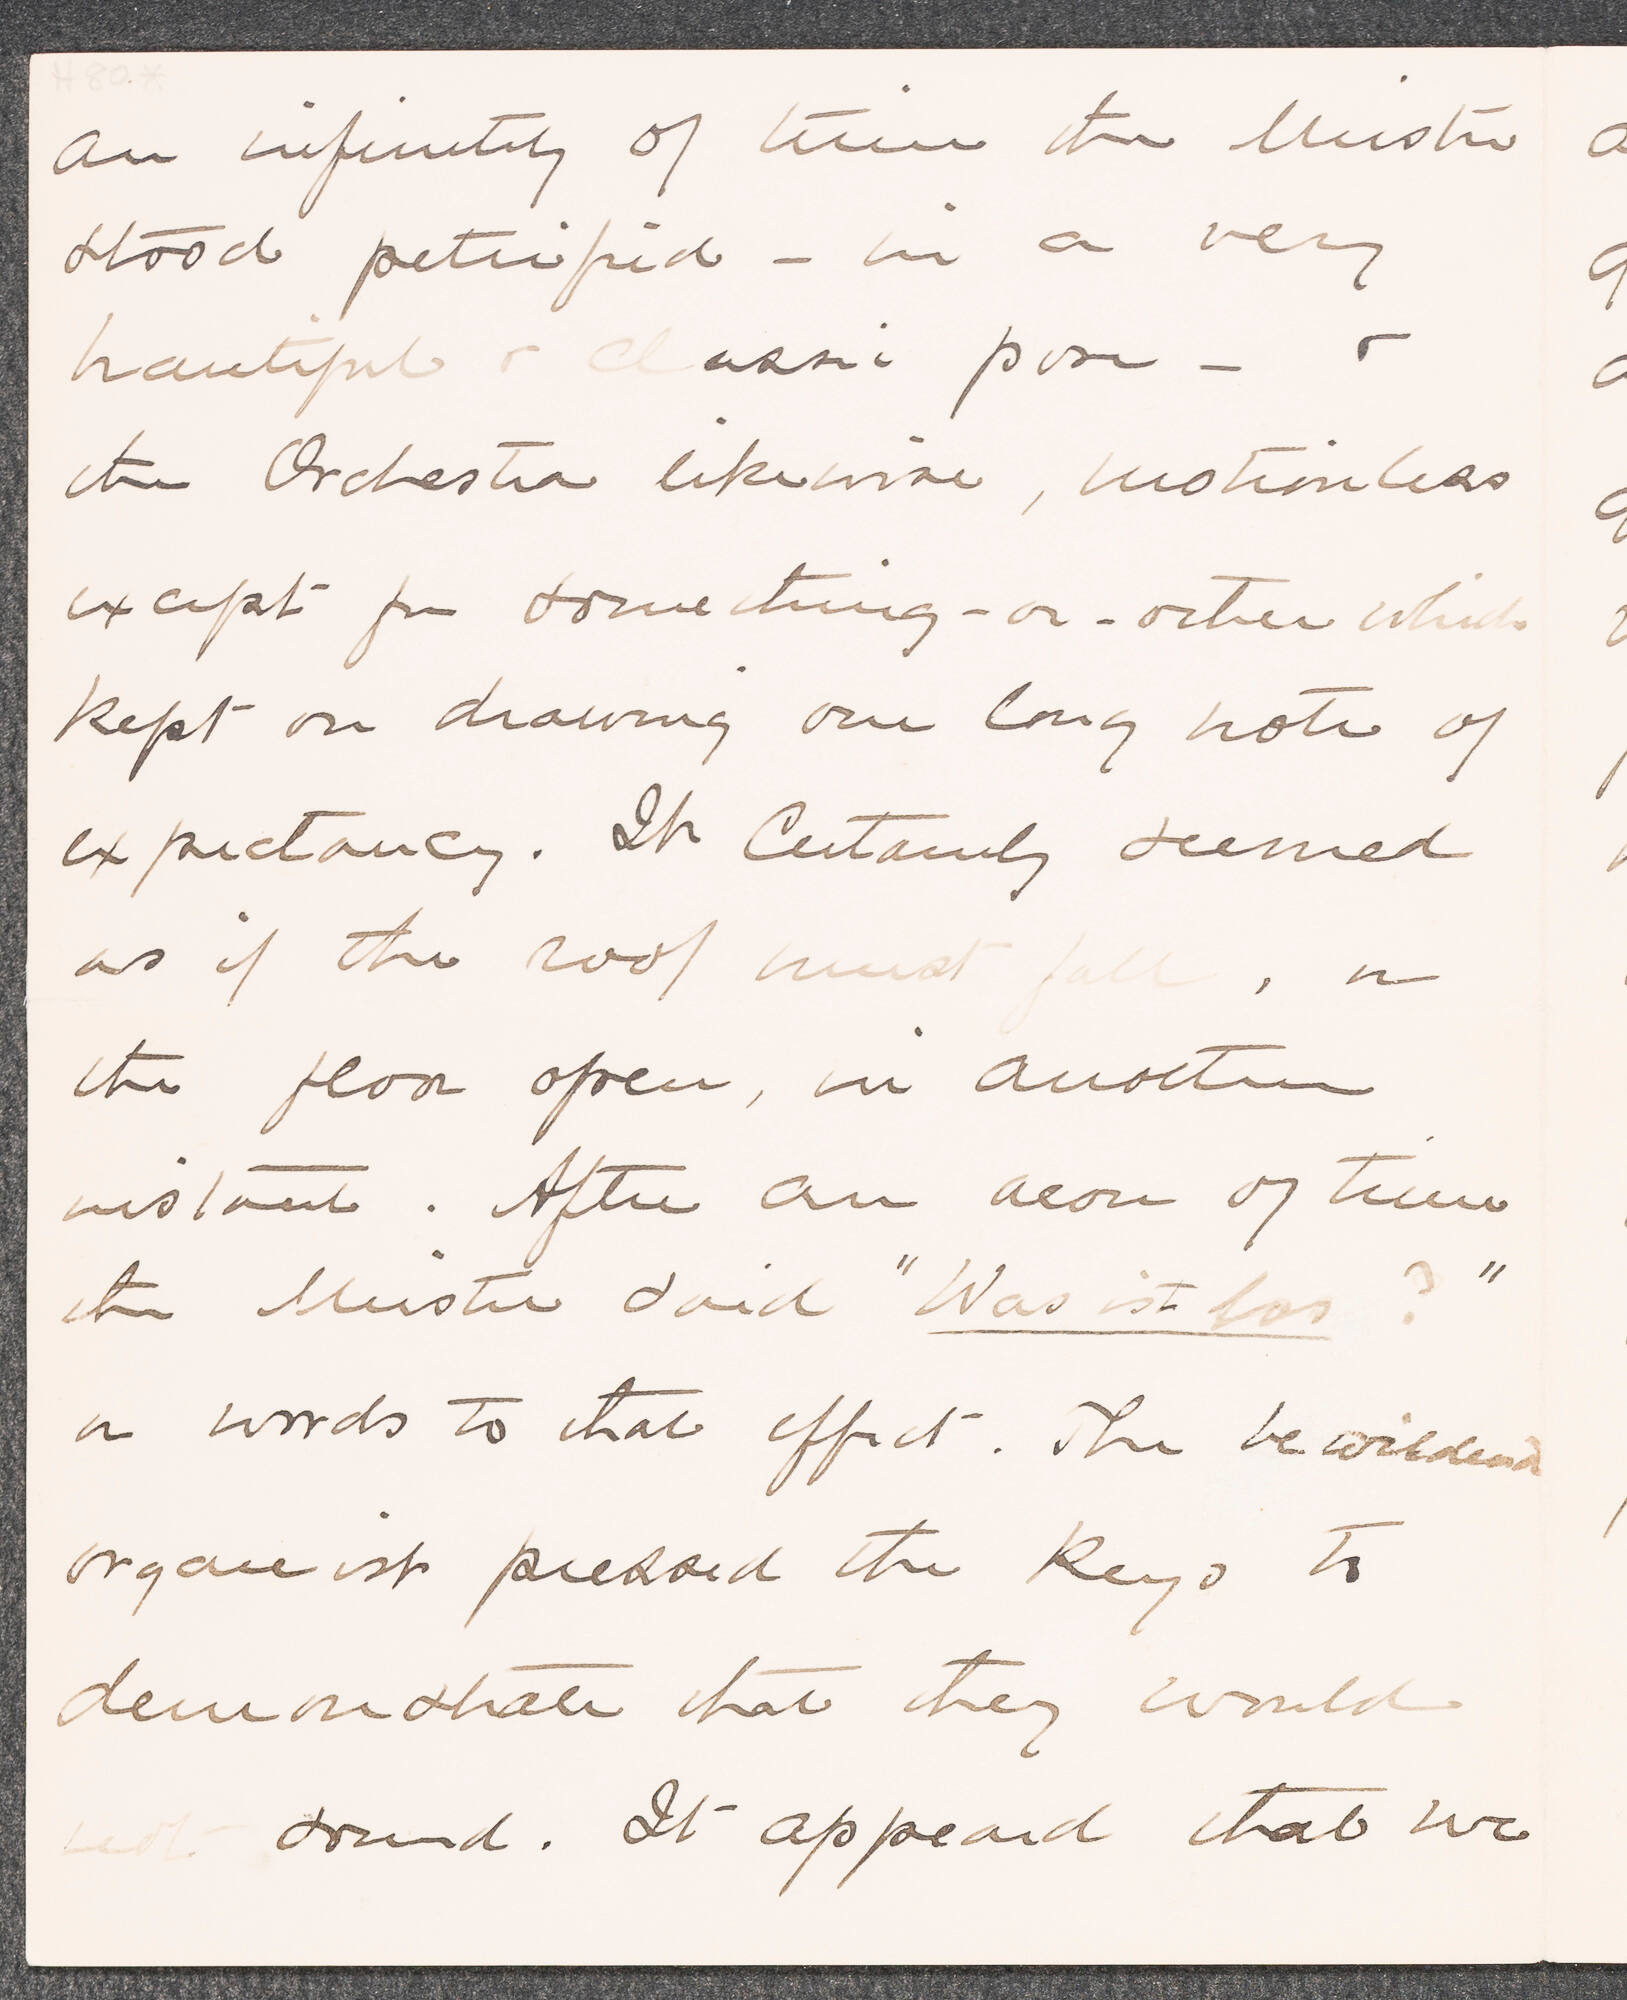 H 80.*
an infinity of time the Meister
stood petrified - in a very
beautiful & classic pose - &
the Orchestra likewise, motionless
except for something-or-other which
kept on drawing one long note of
expectancy. It certainly seemed
as if the roof must fall, or
the floor open, in another
instant. After an aeon of time
the Meister said "Was ist los?"
or words to that effect. The bewildered
organist pressed the keys to
demonstrate that they would
not sound. It appeared that we